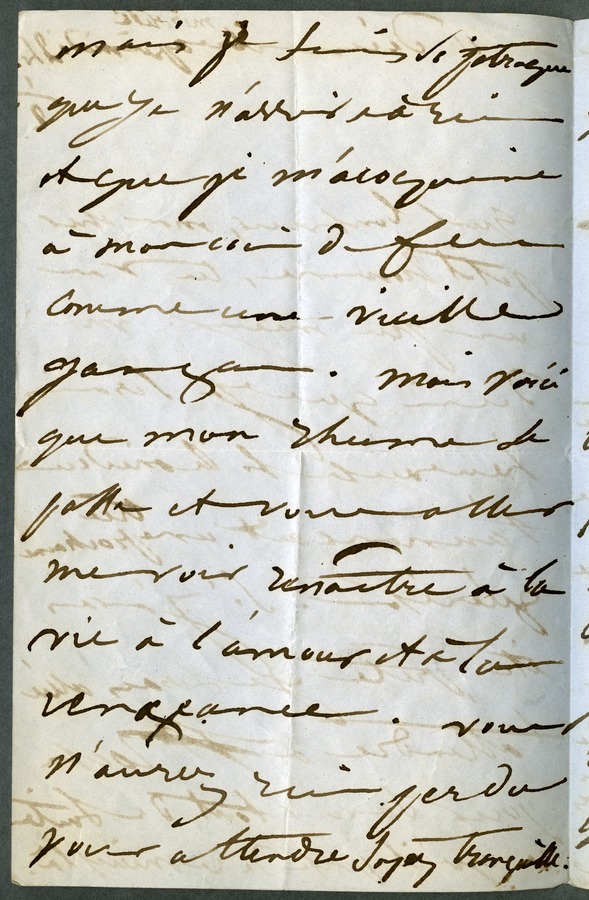 mais je suis si patraque
que je n'arrive à rien
et que je m'acoquine
à mon coin de feu
comme une vieille
garçon. mais voici
que mon rhume se
passe et vous allez
me voir renaître à la
vie à l'amour et à la
vengeance. vous
n'aurez rien perdu
pour attendre soyez tranquille.